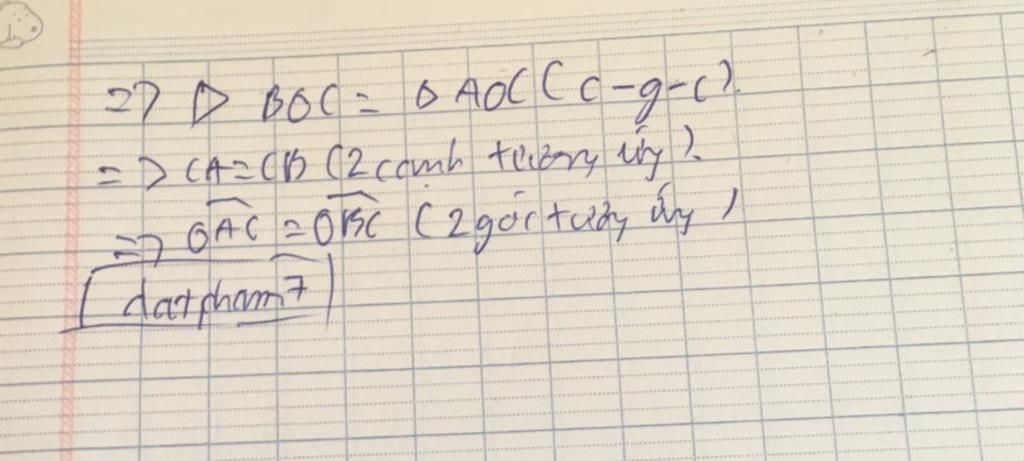 => Δ BOC = Δ AOC (c-g-c).
=> CA = CB (2 cạnh tương ứng).
=> \widehat{OAC} = \widehat{OBC} (2 góc tương ứng)
datpham7